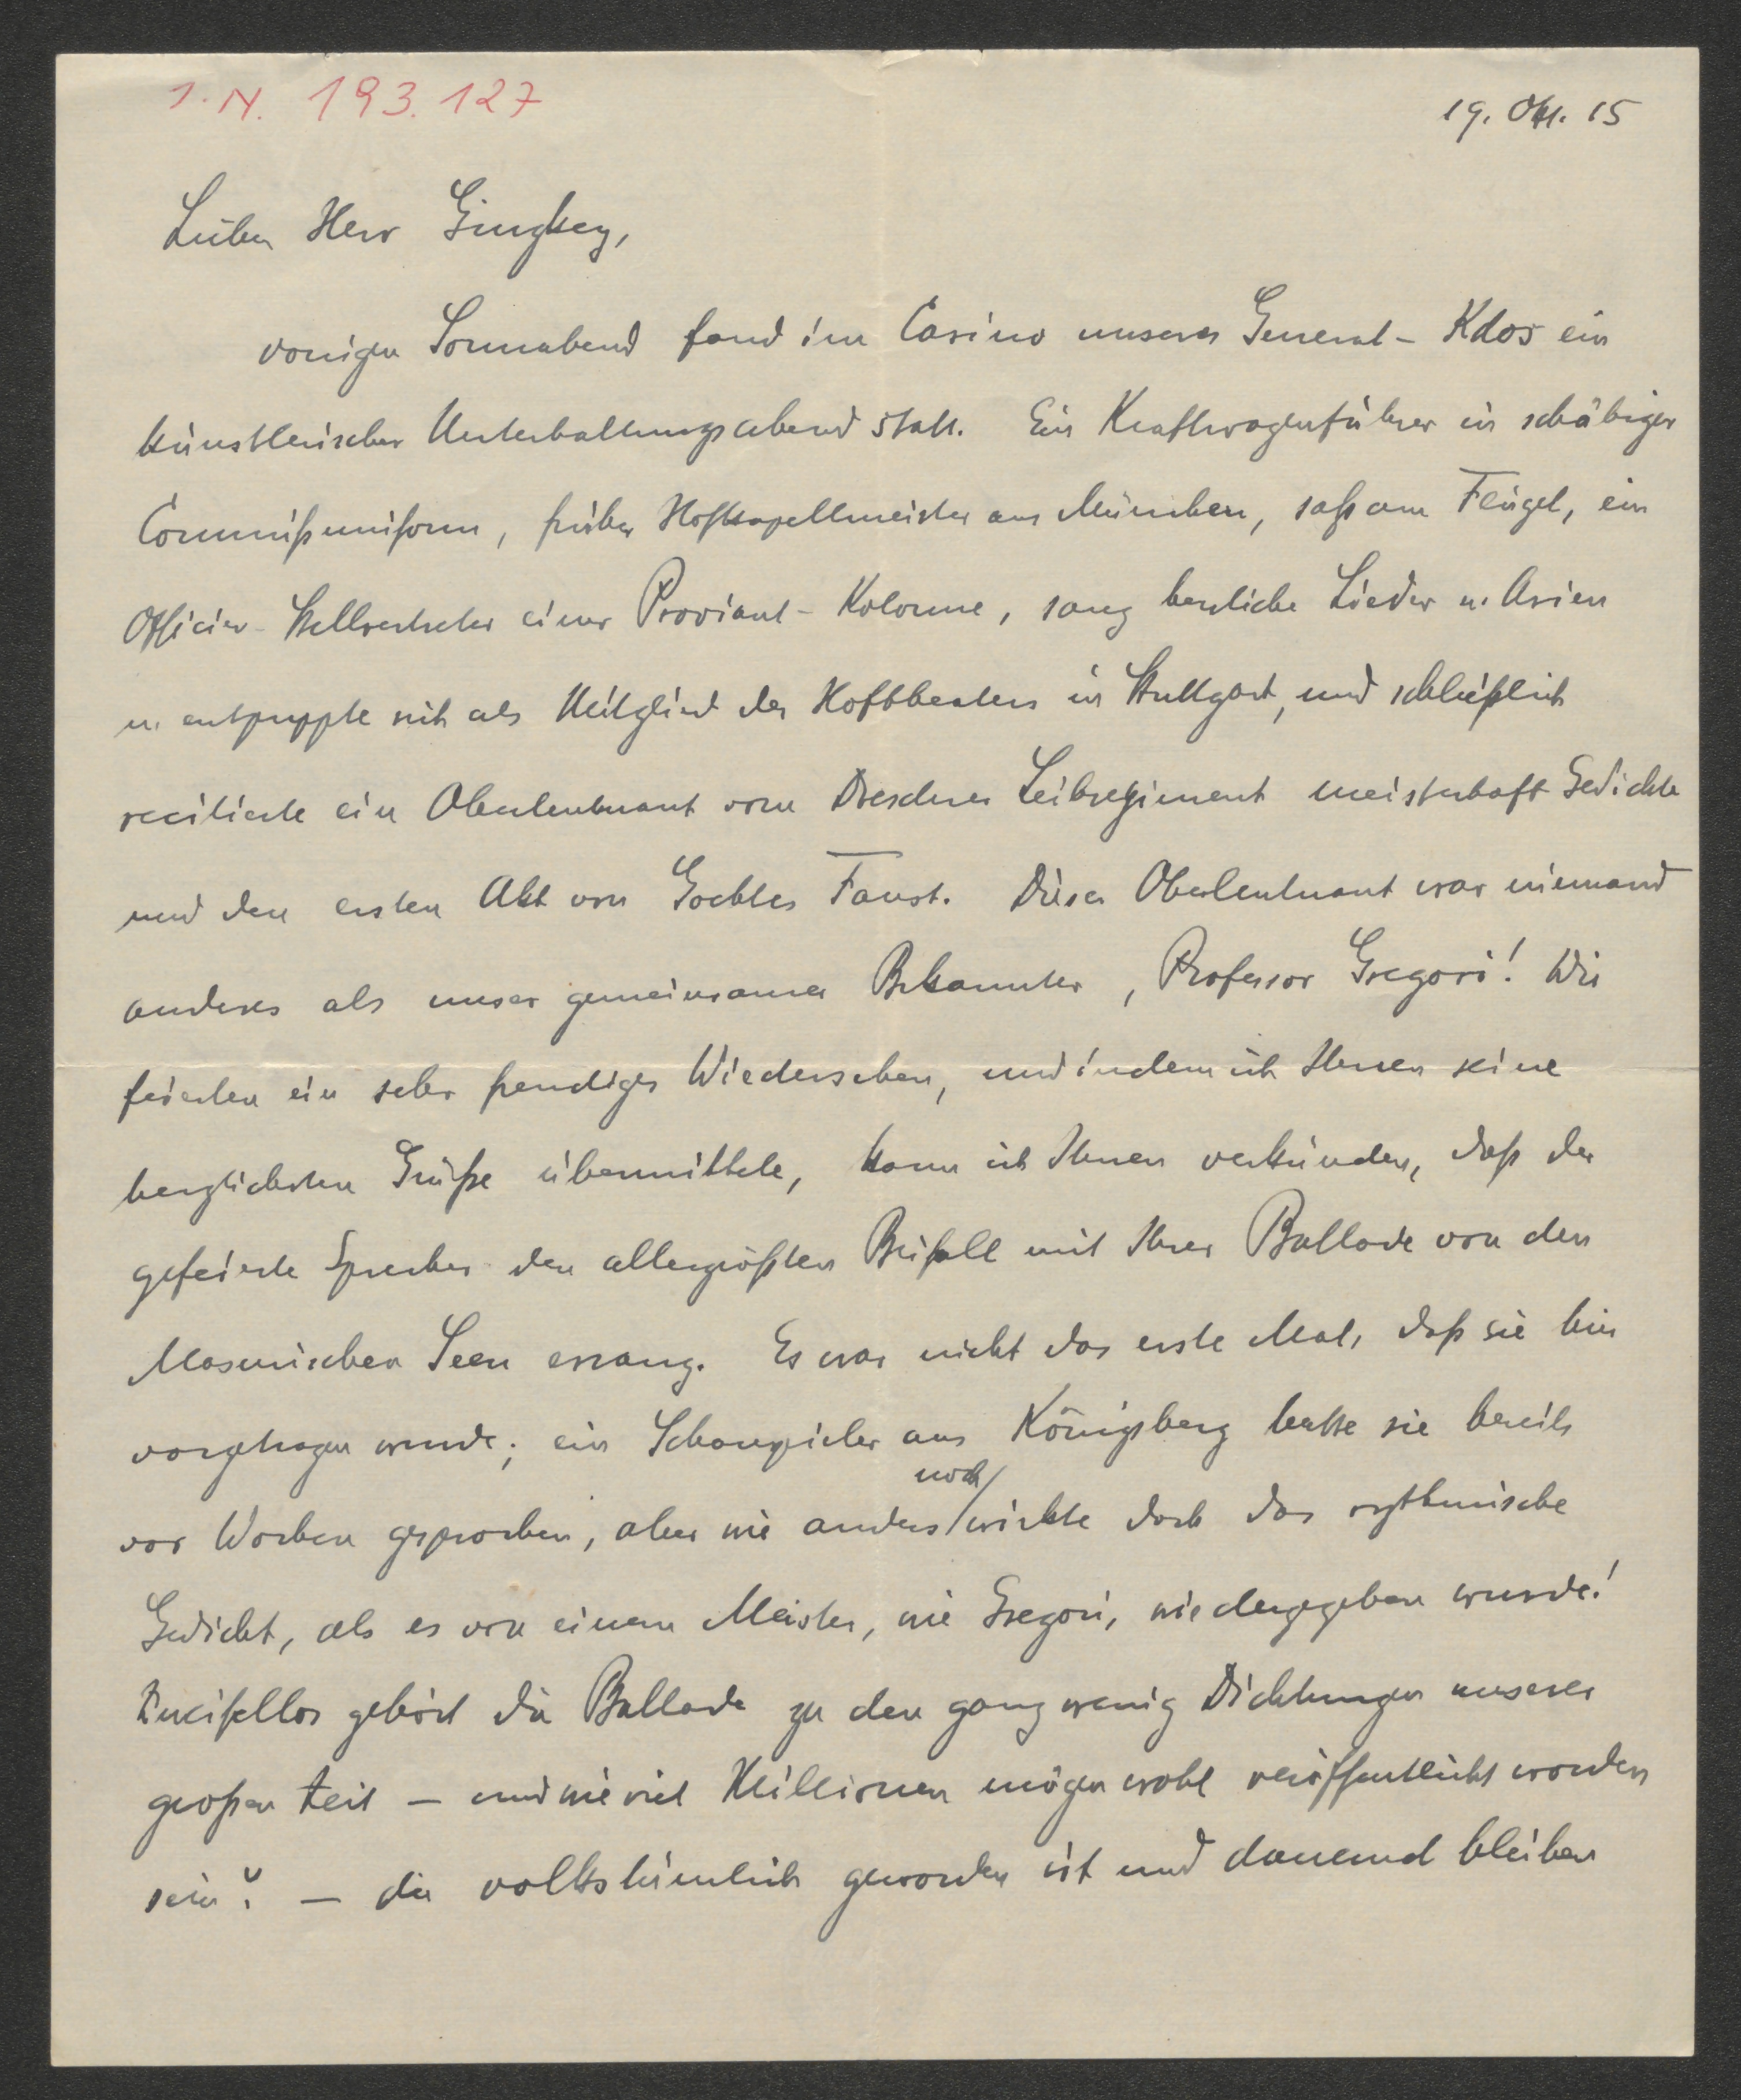 I. N. 193.127
19. Okt. 15
Lieber Herr Ginzkey,
vorigen Sonnabend fand im Casino unseres General-Kdos ein
künstlerischer Unterhaltungsabend statt. Ein Kraftwagenführer in schäbiger
Commißuniform, früher Hofkapellmeister aus München, saß am Flügel, ein
Officier-Stellvertreter einer Proviant-Kolonne, sang herrliche Lieder u. Arien
u. entpuppte sich als Mitglied des Hoftheaters in Stuttgart, und schließlich
recitierte ein Oberleutnant vom Dresdener Leibregiment meisterhaft Gedichte
und den ersten Akt von Goethes Faust. Dieser Oberleutnant war niemand
anderes als unser gemeinsamer Bekannter, Professor Gregori! Wir
feierten ein sehr freudiges Wiedersehen, und indem ich Ihnen seine
herzlichsten Grüße übermittele, kann ich Ihnen verkünden, daß der
gefeierte Sprecher den allergrößten Beifall mit Ihrer Ballade von den
Masurischen Seen errang. Es war nicht das erste Mal, daß sie hier
vorgetragen wurde; ein Schauspieler aus Königsberg hatte sie bereits
vor Wochen gesprochen, aber wie anders noch wirkte doch das rythmische
Gedicht, als es von einem Meister, wie Gregori, wiedergegeben wurde!
Zweifellos gehört die Ballade zu den ganz wenig Dichtungen unserer
großen Zeit – und wie viel Millionen mögen wohl veröffentlicht worden
sein? – die volkstümlich geworden ist und dauernd bleiben